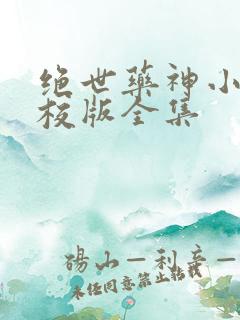 绝世药神小
校版全集
砀山一利辛一
未经同意禁止转载